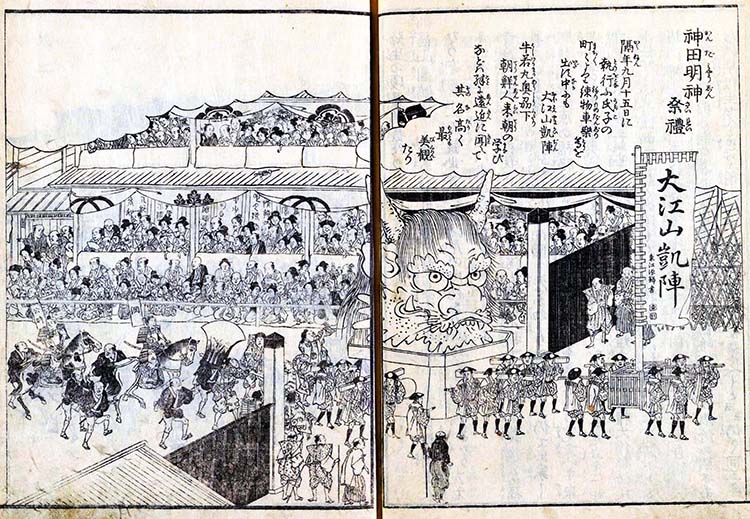 神田明神
祭禮
隔年九月十五日に
執行ふ氏子の
町〻 練物車樂
出す中にも
大江山凱陣
牛若丸奥 下
朝鮮人来朝の
学び
遠近に聞て
其名高く
最
美観
たり
大江山凱陣
東江源鱗書